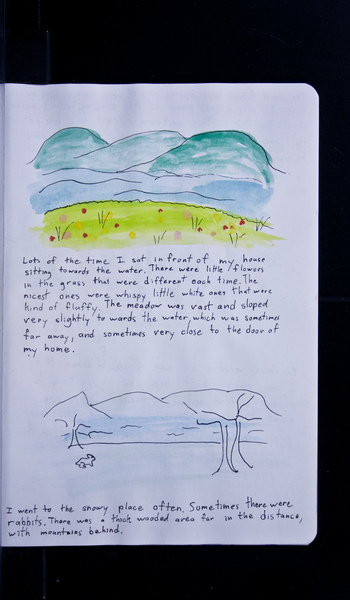 Lots of the time I sat in front of my house
sitting towards the water. There were little flowers
in the grass that were different each time. The
nicest ones were whispy little white ones that were
kind of fluffy. The meadow was vast and sloped
very slightly towards the water, which was sometimes
far away, and sometimes very close to the door of
my home.
I went to the snowy place often. Sometimes there were
rabbits. There was a thick wooded area far in the distance,
with mountains behind.